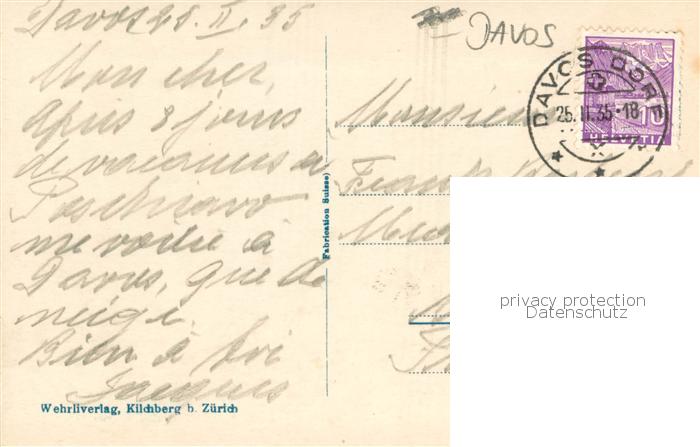 Davos 25. II. 35
Mon cher,
Après 8 jours
de vacances à
Poschiavo
me voilà à
Davos, que de
neige
Bien à toi
Jacques
Wehrliverlag, Kilchberg b. Zürich
Fabrication Suisse)
DAVOS
DAVOS DORF
25.II.35-18
10
HELVETIA
Monsieur
privacy protection
Datenschutz